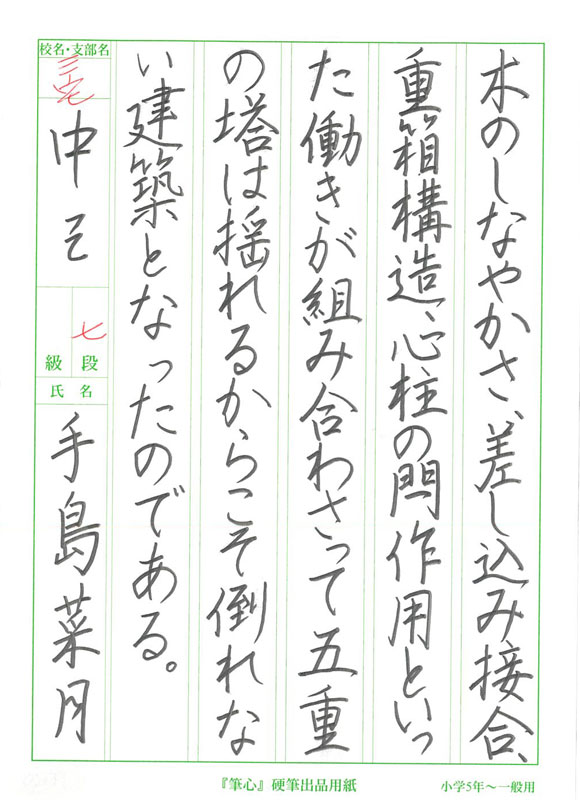 木のしなやかさ、差し込み接合、
重箱構造、心柱の閂作用といっ
た働きが組み合わさって五重
の塔は揺れるからこそ倒れな
い建築となったのである。
校名・支部名
中三
七
級 段
氏 名
手島菜月
『筆心』硬筆出品用紙
小学5年〜一般用